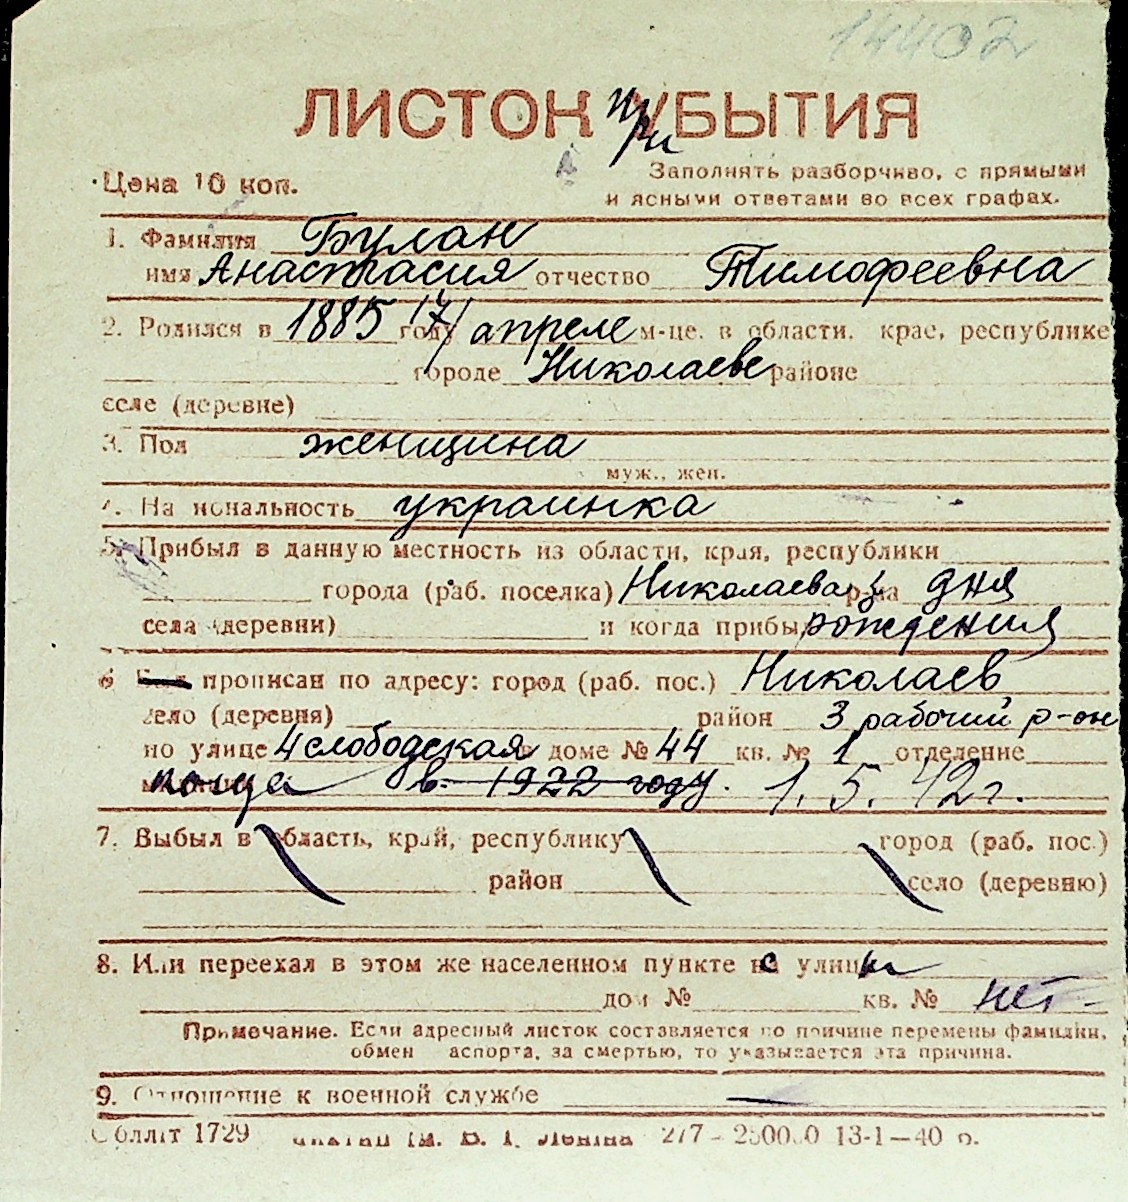 14402
ЛИСТОК при УБЫТИЯ
Цена 10 коп.
Заполнять разборчиво, с прямыми
и ясными ответами во всех графах.
1. Фамилия Булан
имя Анастасия отчество Тимофеевна
2. Родился в 1885 году 17/ апреле м-це. в области. крае, республике
городе Николаеве районе
селе (деревне)
3. Пол женщина
муж., жен.
4. На иональность украинка
5. Прибыл в данную местность из области, края, республики
города (раб. поселка) Николаева р-на дня
села (деревни) и когда прибыл рождения
6 прописан по адресу: город (раб. пос.) Николаев
село (деревня) район 3 рабочий р-он
по улице 4 слободская в доме № 44 кв. № 1 отделение
когда в 1922 году. 1. 5. 42 г.
7. Выбыл в область, край, республику город (раб. пос.)
район село (деревню)
8. Или переехал в этом же населенном пункте с улицы
дом № кв. № нет -
Примечание. Если адресный листок составляется по причине перемены фамилии,
обмен аспорта, за смертью, то указывается эта причина.
9. Отношение к военной службе —
Обллiт 1729 iм. В. I. Ленiна 277 - 200000 13-1—40 р.